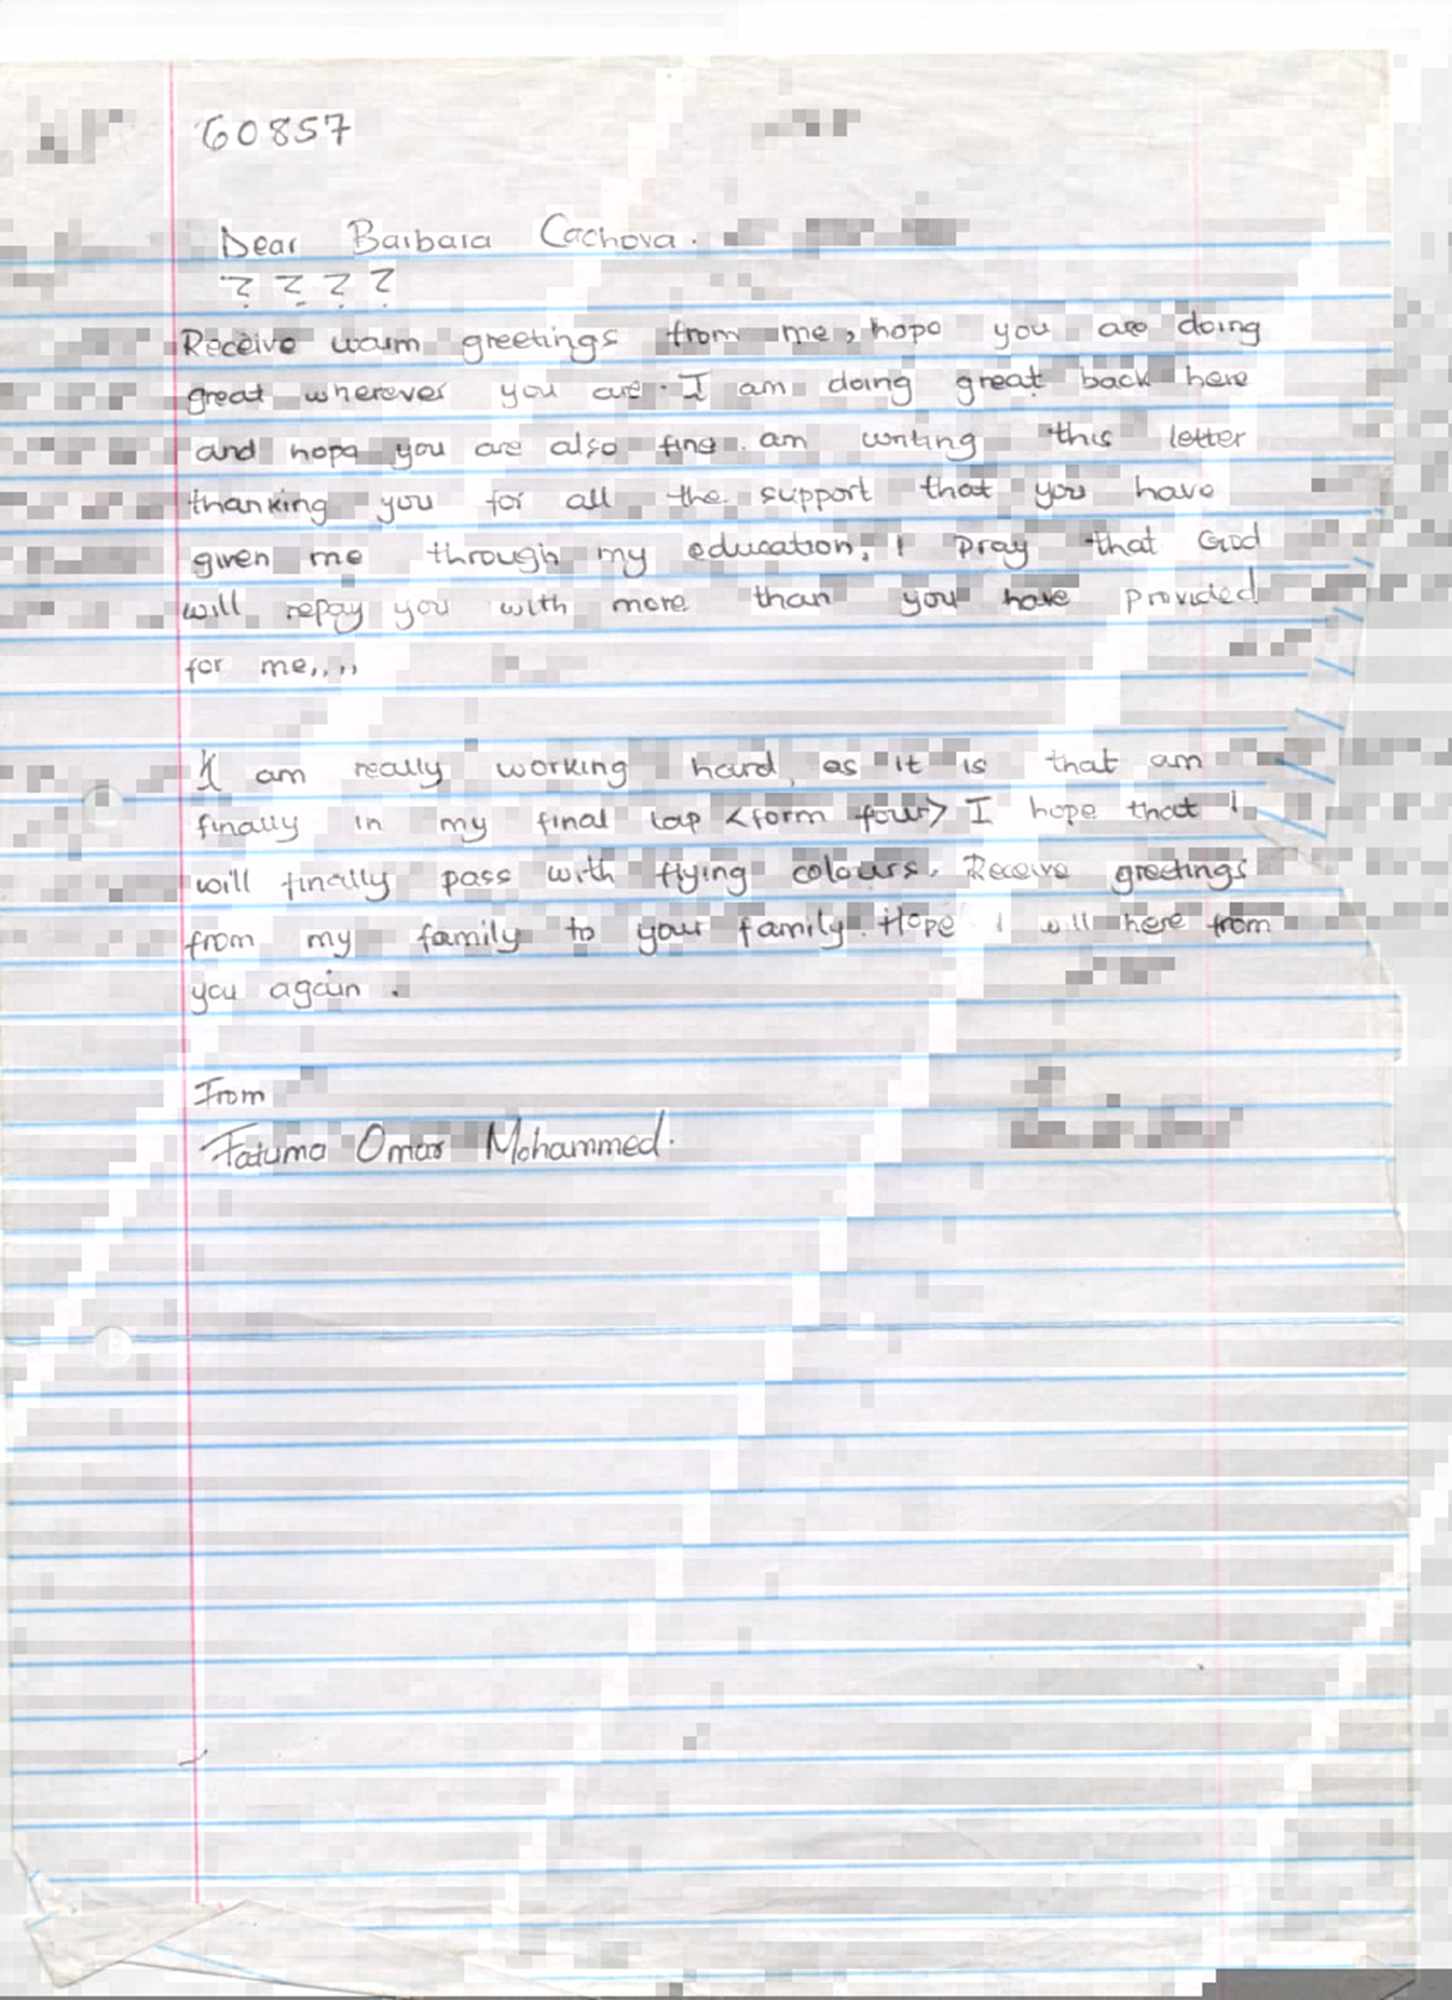 60857
Dear Barbara Cachova.
? ? ? ?
Receive warm greetings from me, hope you are doing
great wherever you are. I am doing great back here
and hope you are also fine. am writing this letter
thanking you for all the support that you have
given me through my education, I pray that God
will repay you with more than you have provided
for me,,,,
I am really working hard, as it is that am
finally in my final lap <form four> I hope that I
will finally pass with flying colours. Receive greetings
from my family to your family. Hope I will here from
you again.
From
Fatuma Omar Mohammed.